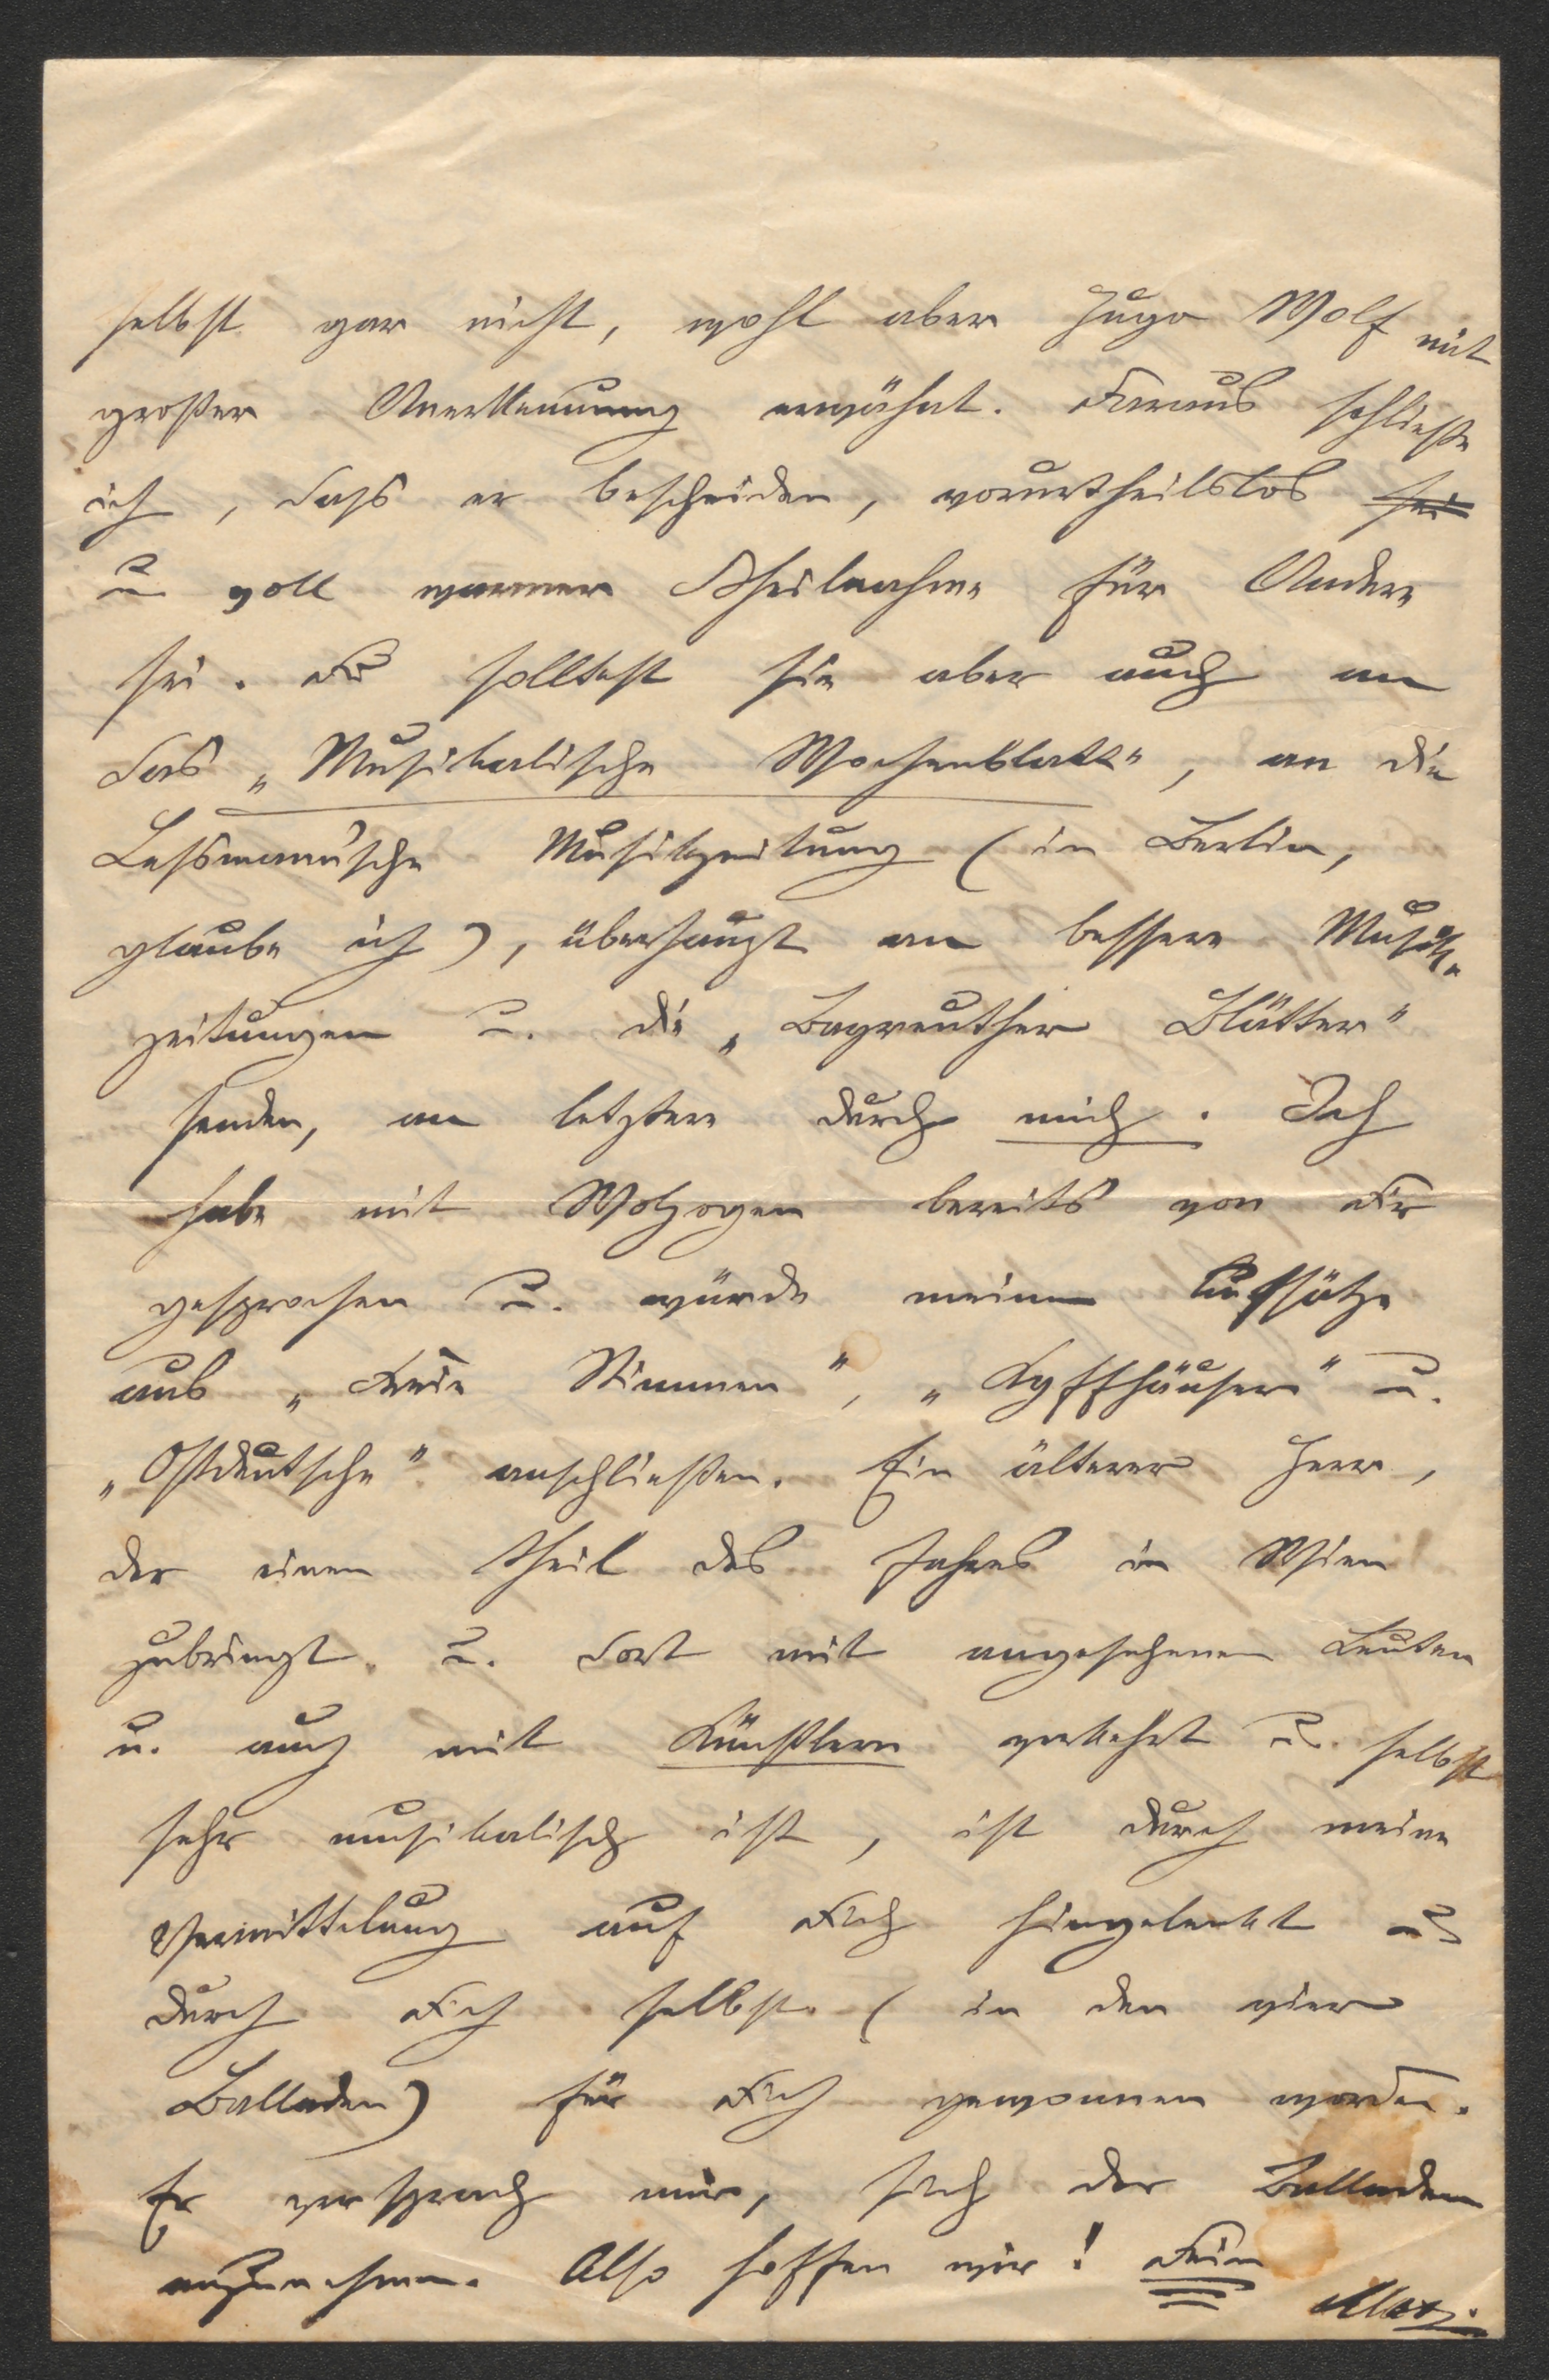 selbst gar nicht, wohl aber Hugo Wolf mit
großer Anerkennung erwähnt. Daraus schließe
ich, dass er bescheiden, vorurtheilslos sei
u voll warmer Theilnahme für Andere
sei. Du solltest sie aber auch an
das „Musikalische Wochenblatt", an die
Lessmann'sche Musikzeitung (in Berlin,
glaube ich), überhaupt an bessere Musik-
zeitungen u. die „Bayreuther Blätter"
senden, an letztere durch mich. Ich
habe mit Wolzogen bereits von Dir
gesprochen u. würde meine Aufsätze
aus „Freie Stimmen", „Kyffhäuser" u.
„Ostdeutsche" anschließen. Ein älterer Herr,
der einen Theil des Jahres in Wien
zubringt u. dort mit angesehenen Leuten
u. auch mit Künstlern verkehrt u. selbst
sehr musikalisch ist, ist durch meine
Vermittelung auf Dich hingelenkt u
durch Dich selbst (in den vier
Balladen) für Dich gewonnen worden.
Er versprach mir, sich der Balladen
anzunehmen. Also hoffen wir! Dein